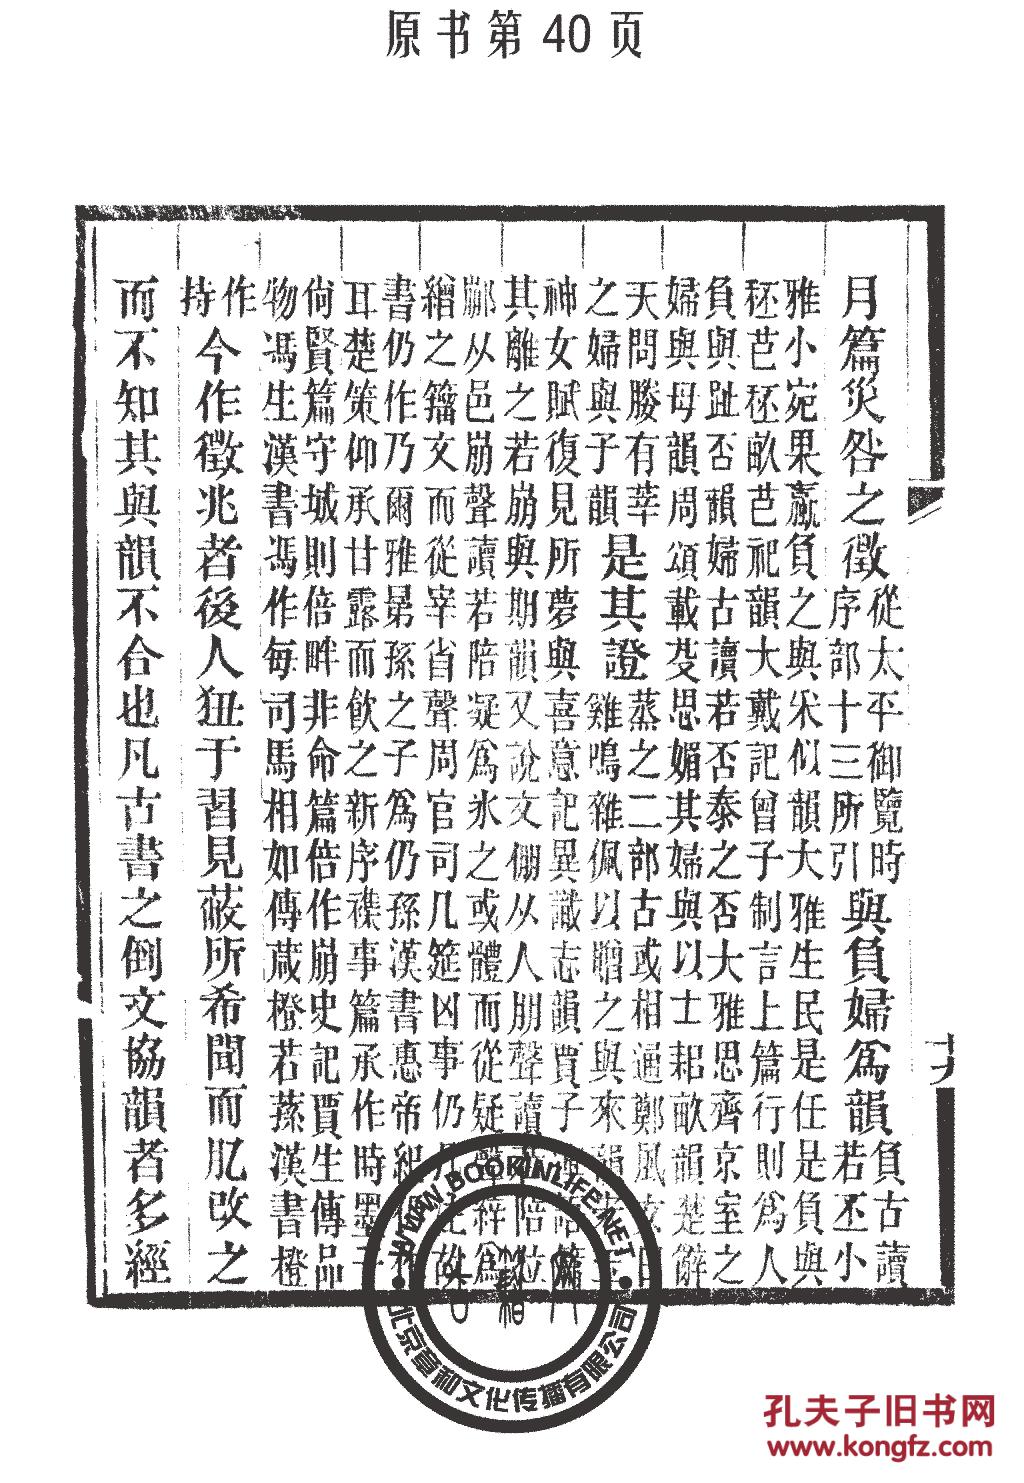 原书第40页
月篇災咎之徵從太平御覽時
序部十三所引與負婦爲韻負古讀
若丕小
雅小宛果蠃負之與采似韻大雅生民是任是負與
秠芑秠畝芑祀韻大戴記曾子制言上篇行則爲人
負與趾否韻婦古讀若否泰之否大雅思齊京室之
婦與母韻周頌載芟思媚其婦與以士耜畝韻楚辭
天問媵有莘
之婦與子韻是其證蒸之二部古或相通鄭風
雞鳴雜佩以贈之與來韻
神女賦復見所夢與喜意記異識志韻賈子
其離之若崩與期韻又說文倗从人朋聲讀陪位
䣙从邑崩聲讀若陪凝爲氷之或體而從疑聲
繒之籀文而從宰省聲周官司几筵凶事仍
書仍作乃爾雅晜孫之子爲仍孫漢書惠帝紀
耳楚策仰承甘露而飮之新序襍事篇承作時墨子
尙賢篇守城則倍畔非命篇倍作崩史記賈生傳品
物馮生漢書馮作每司馬相如傳葴橙若蓀漢書橙
作
持今作徵兆者後人狃于習見蔽所希聞而肊改之
而不知其與韻不合也凡古書之倒文協韻者多經
十六
WWW.BOOKINLIFE.NET
北京章和文化传播有限公司
孔夫子旧书网
www.kongfz.com